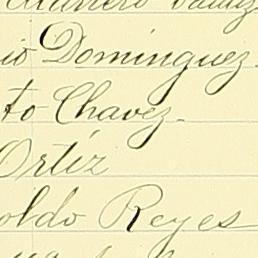 io Dominguez.
to Chavez.
Ortíz
oldo Reyes